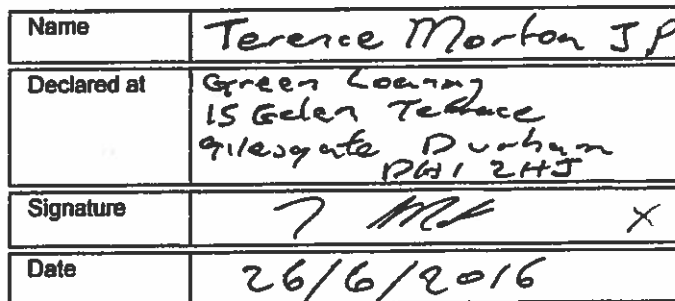 Name Terence Morton JP
Declared at Green Loaning
15 Telen Terrace
gilesgate Durham
DH1 2HJ
Signature X
Date 26/6/2016